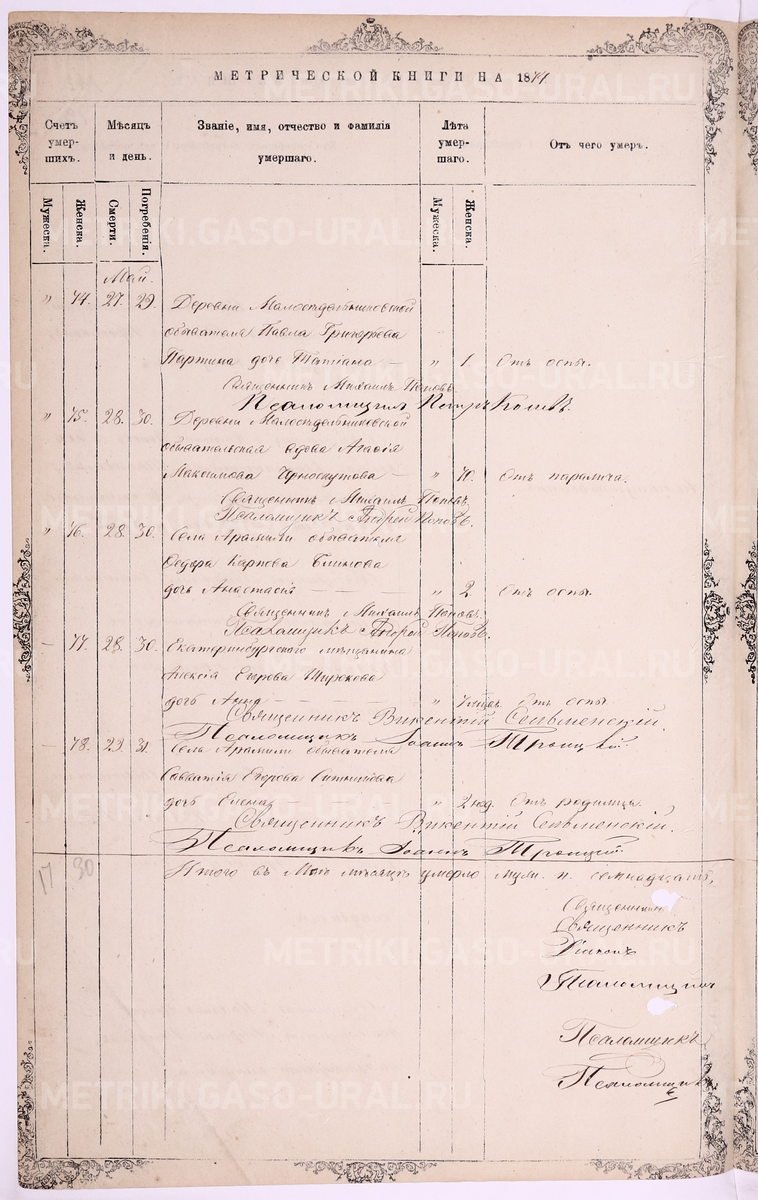 МЕТРИЧЕСКОЙ КНИГИ НА 18
Счетъ умер- шихъ.
Мѣсяцъ и день.
Званіе, имя, отчество и фамилія умершаго.
Лѣта умер- шаго.
Отъ чего умеръ.
Мужеска.
Женска.
Смерти.
Погребенія.
Мужеска.
Женска.
Май.
" 74. 27. 29. Деревни Малосѣдельниковской
обывателя Павла Григорьева
дочь Татіана — " 1. Отъ оспы.
Священникъ Михаилъ Поповъ.
Псаломщикъ Петръ
" 75. 28. 30. Деревни Малосѣдельниковской
обывательская вдова Агафія
Максимова Черноскутова — " 70. Отъ паралича.
Священникъ Михаилъ Поповъ.
Псаломщикъ Андрей Поповъ.
" 76. 28. 30. Села Арамили обывателя
Федора Карпова Блинова
дочь Анастасія — — " 2 Отъ оспы.
Священникъ Михаилъ Поповъ.
Псаломщикъ Андрей Поповъ.
— 77. 28. 30. Екатеринбургскаго мѣщанина
Алексія Егорова Широкова
дочь Анна — — " Отъ оспы
Священникъ Викентій
Псаломщикъ Іоаннъ Троицкій.
— 78. 29. 31. Села Арамили обывателя
Савватія Егорова
дочь — " 2 Отъ родимца.
Священникъ Викентій
Псаломщикъ Іоаннъ Троицкій.
17 30
Итого въ Маѣ мѣсяцѣ умерло муж. п. семнадцать,
Священникъ
Священникъ
Діаконъ
Псаломщикъ
Псаломщикъ
Псаломщикъ
METRIKI.GASO-URAL.RU